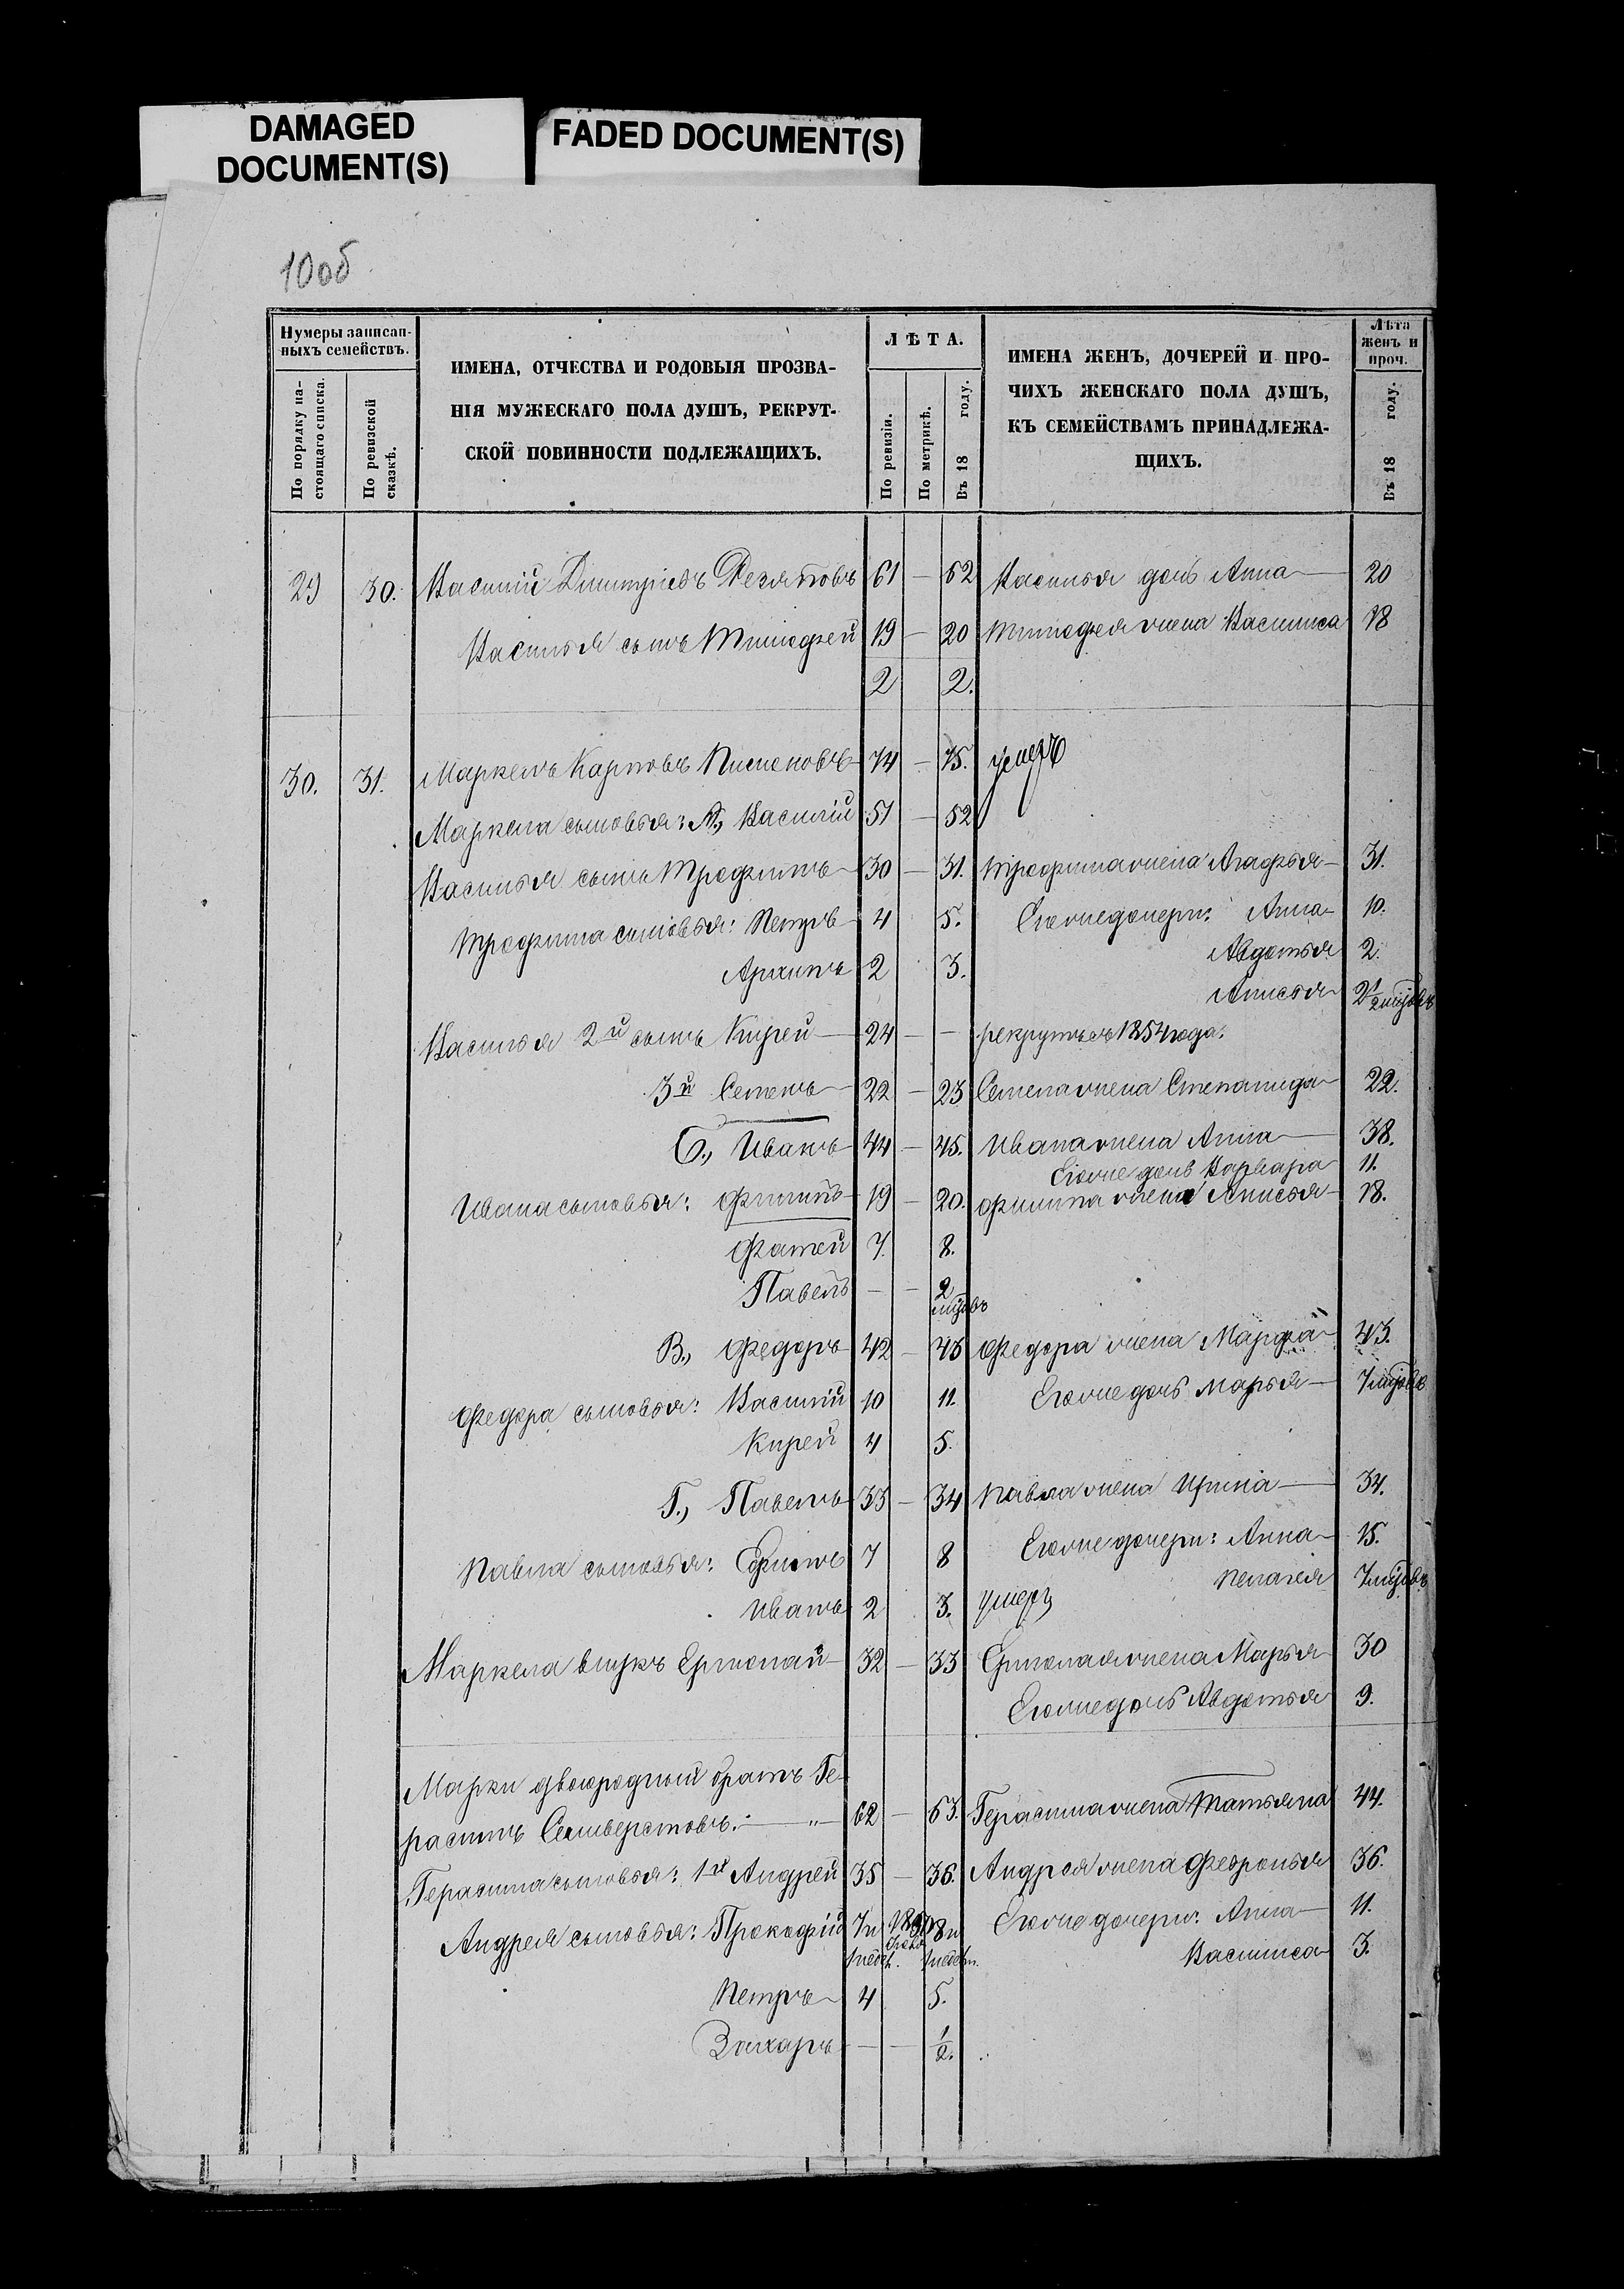 DAMAGED
DOCUMENT(S)
FADED DOCUMENT(S)
10об
Нумеры записан-
ныхъ семействъ.
По порядку на-
стоящаго списка.
По ревизской
сказкѣ.
ИМЕНА, ОТЧЕСТВА И РОДОВЫЯ ПРОЗВА-
НІЯ МУЖЕСКАГО ПОЛА ДУШЪ, РЕКРУТ-
СКОЙ ПОВИННОСТИ ПОДЛЕЖАЩИХЪ.
ЛѢТА.
По ревизіи.
По метрикѣ.
Въ 18 году.
ИМЕНА ЖЕНЪ, ДОЧЕРЕЙ И ПРО-
ЧИХЪ ЖЕНСКАГО ПОЛА ДУШЪ,
КЪ СЕМЕЙСТВАМЪ ПРИНАДЛЕЖА-
ЩИХЪ.
Лѣта
женъ и
проч.
Въ 18 году.
29 30. Василій Дмитріевъ 61 — 62 Василья дочь Анна — 20
Василья сынъ Тимофей 19 — 20 Тимофея жена Василиса 18
2 2.
30. 31. Маркелъ Карповъ 74 — 75. умеръ
Маркела сыновья: А., Василій 51 — 52
Василья сынъ Трофимъ — 30 — 31. Трофима жена Агафья — 31.
Трофима сыновья: Петръ — 4 5. Его же дочери: Анна 10.
Архипъ 2 3. Авдотья 2.
Анисья 2 1/2 мцовъ
Василья 2й сынъ Кирей — 24 — — рекрутъ съ 1854 года.
3й Семенъ — 22 — 23 Семена жена Степанида 22.
Б., Иванъ — 44 — 45. Ивана жена Анна — 38.
Его же дочь Варвара 11.
Ивана сыновья: Филипъ — 19 — 20. Филипа жена Анисья — 18.
Фатей 7. 8.
Павелъ — — 2
мцовъ
В., Федоръ — 42 — 43 Федора жена Марфа — 43.
Федора сыновья: Василій 10 11. Его же дочь Марья — 7 мцовъ
Кирей 4 5.
Г., Павелъ 33 — 34 Павла жена Ирина — 34.
Павла сыновья: Ефимъ 7 8 Его же дочери: Анна 15.
Пелагея 7 мцовъ
Иванъ 2 3. умеръ
Маркела внукъ Ермолай — 32 — 33 Ермолая жена Марья 30
Его же дочь Авдотья 9.
двоюродный братъ Ге-
расимъ Селиверстовъ. — „ — 62 — 63. Герасима жена Татьяна 44.
Герасима сыновья: 1й Андрей 35 — 36. Андрея жена Февронья 36.
Андрея сыновья: Прокофій Его же дочери: Анна — 11.
Василиса 3.
Петръ 4 5.
Захаръ — — 1/2.